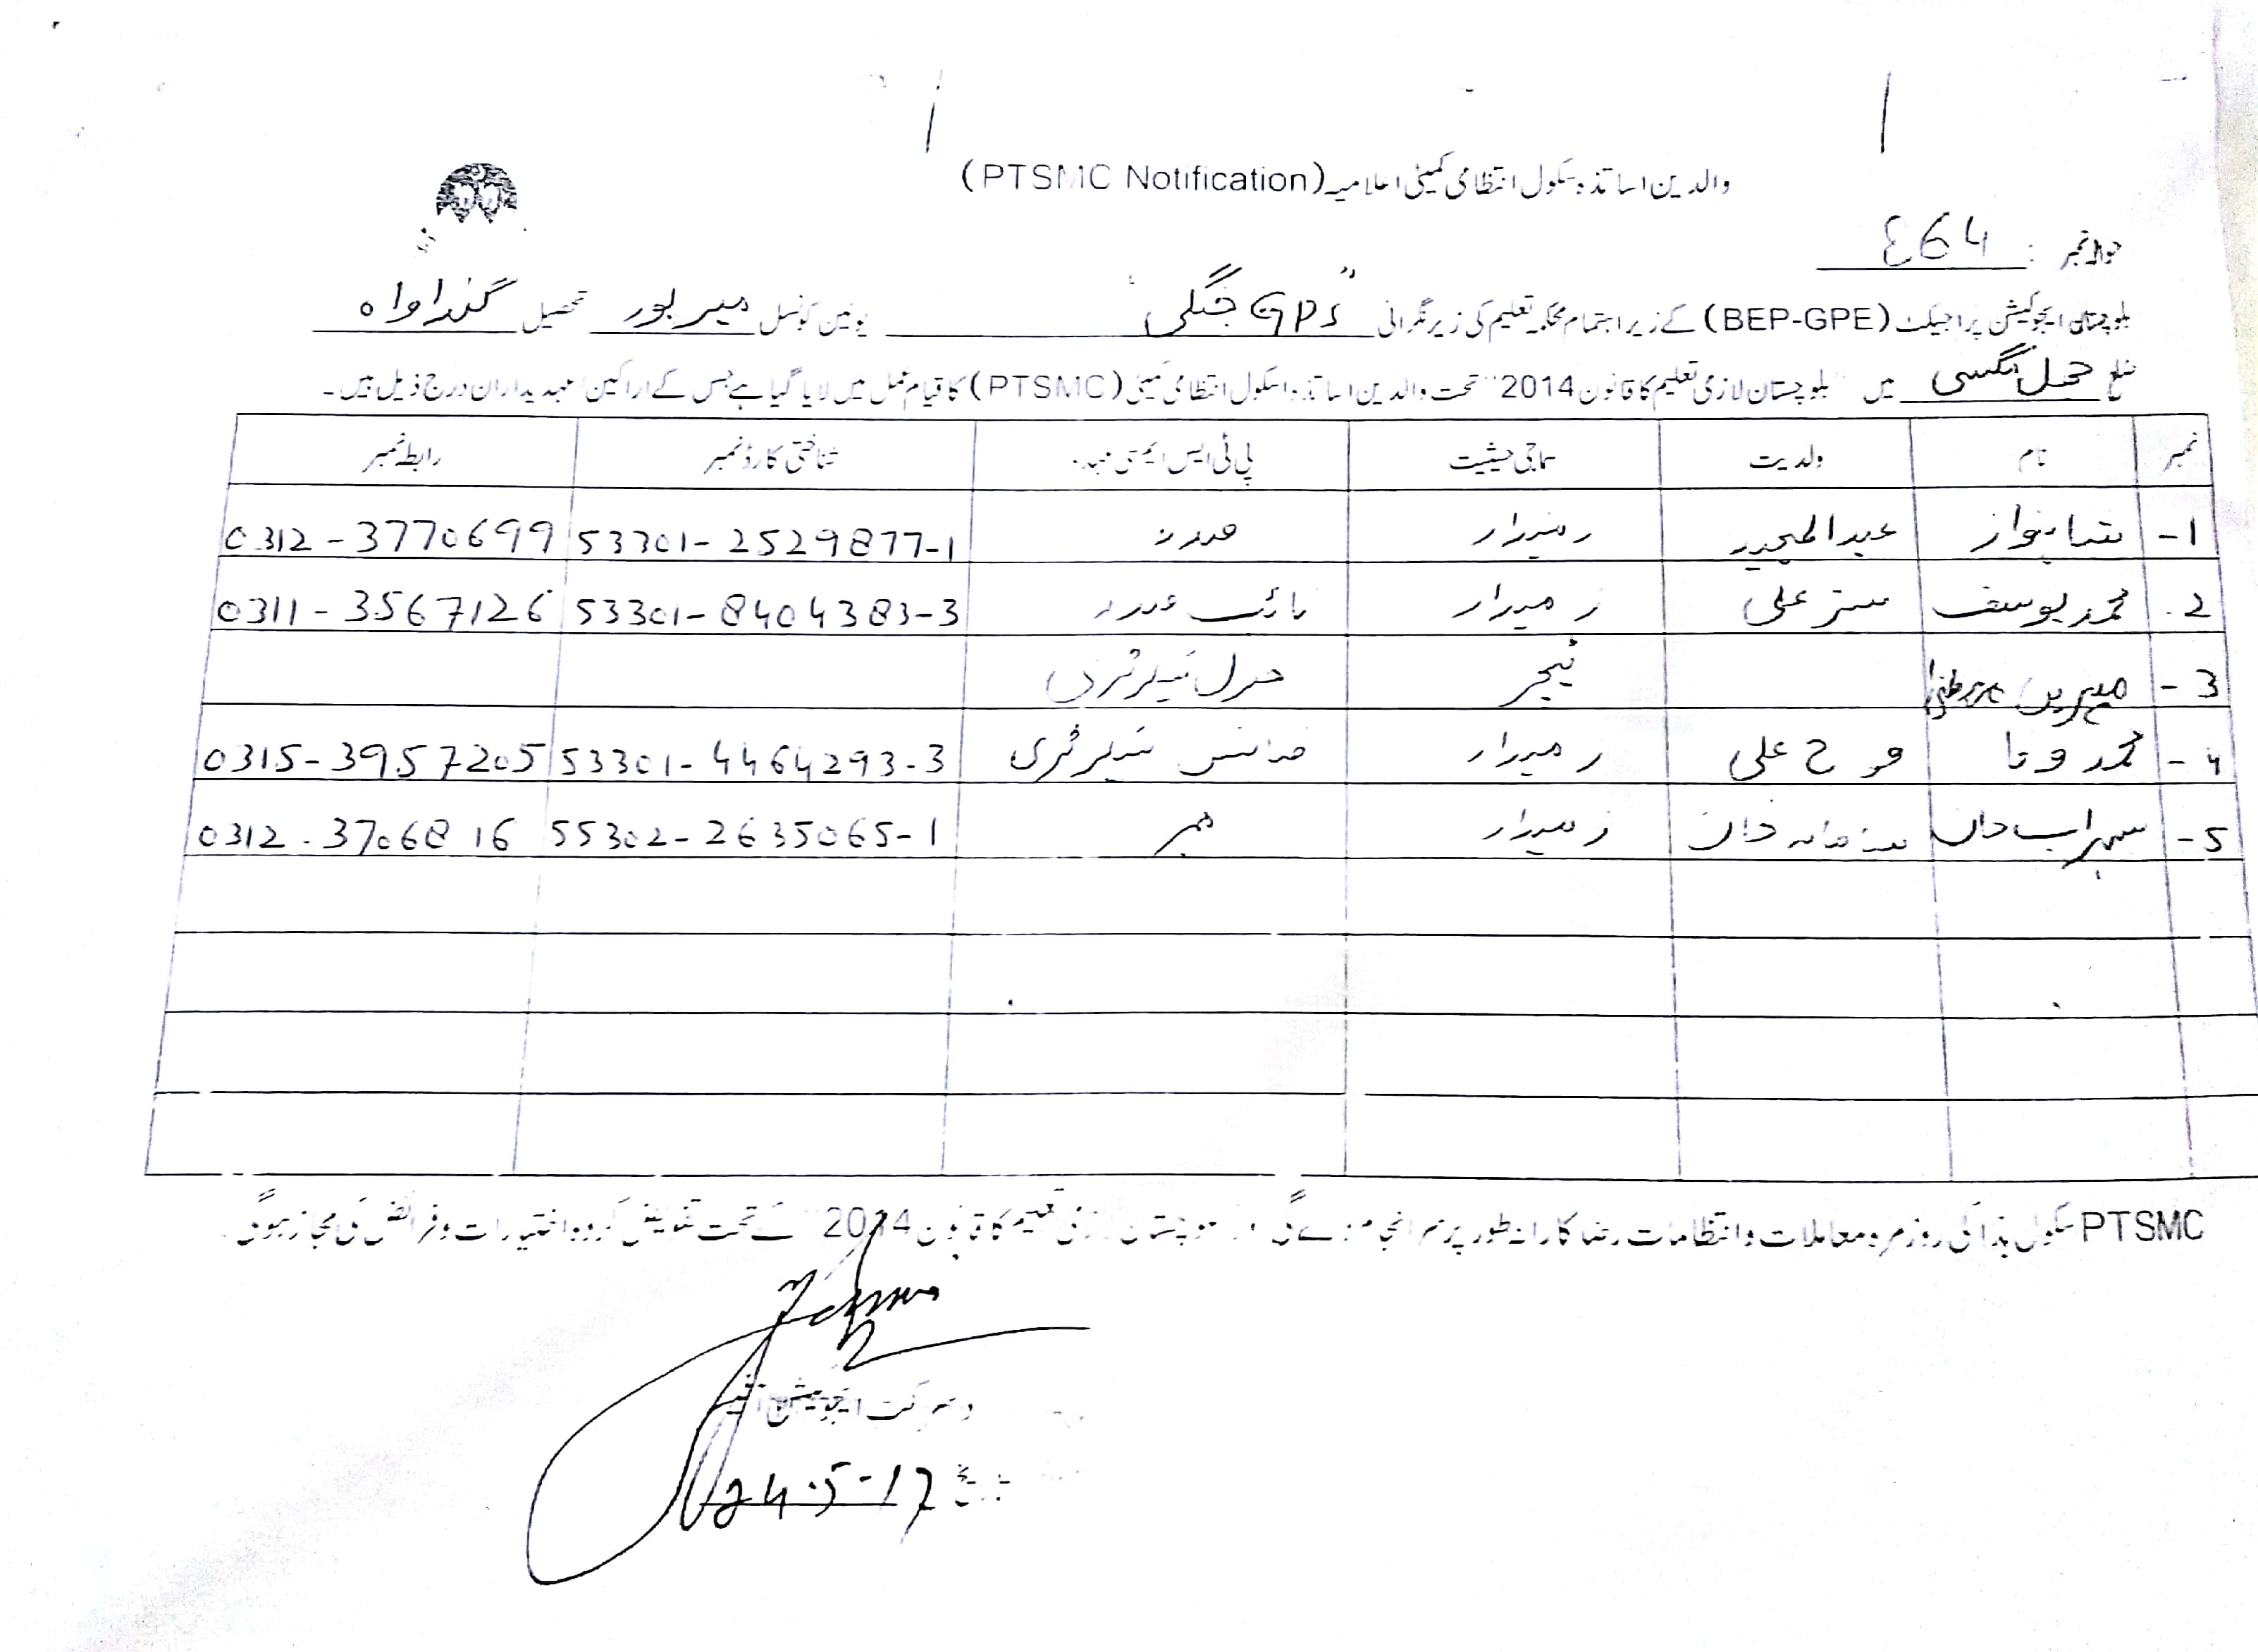 والدین اساتذہ سکول انتظامی کمیٹی اعلامیہ (PTSMC Notification)
حوالہ نمبر : 464
بلوچستان ایجوکیشن پراجیکٹ (BEP-GPE) کے زیر اہتمام محکمہ تعلیم کی زیر نگرانی GPS جنگلی یونین کونسل میر پور تحصیل گنداواہ
ضلع جھل مگسی میں "بلوچستان لازمی تعلیم کا قانون 2014" تحت والدین اساتذہ اسکول انتظامی کمیٹی (PTSMC) کا قیام عمل میں لایا گیا ہے جس کے اراکین عہدیداران درج ذیل ہیں۔
نمبر نام ولدیت سماجی حیثیت پی ٹی ایس ایم سی عہدہ شناختی کارڈ نمبر رابطہ نمبر
1- شاہنواز عبدالمجید زمیندار صدر 53301-2529877-1 0312-3770699
2- محمد یوسف علی زمیندار نائب صدر 53301-8404383-3 0311-3567126
3- ٹیچر جنرل سیکرٹری
4- محمد وفا علی زمیندار فنانس سیکرٹری 53301-4464293-3 0315-3957205
5- سہراب خان خان زمیندار ممبر 55302-2635065-1 0312-3706816
PTSMC سکول ہذا کی روزمرہ معاملات و انتظامات رضا کارانہ طور پر سر انجام دے گی اور بلوچستان لازمی تعلیم کا قانون 2014 کے تحت تفویض کردہ اختیارات و فرائض کی مجاز ہوگی
ڈسٹرکٹ ایجوکیشن آفیسر
تاریخ 24-5-17